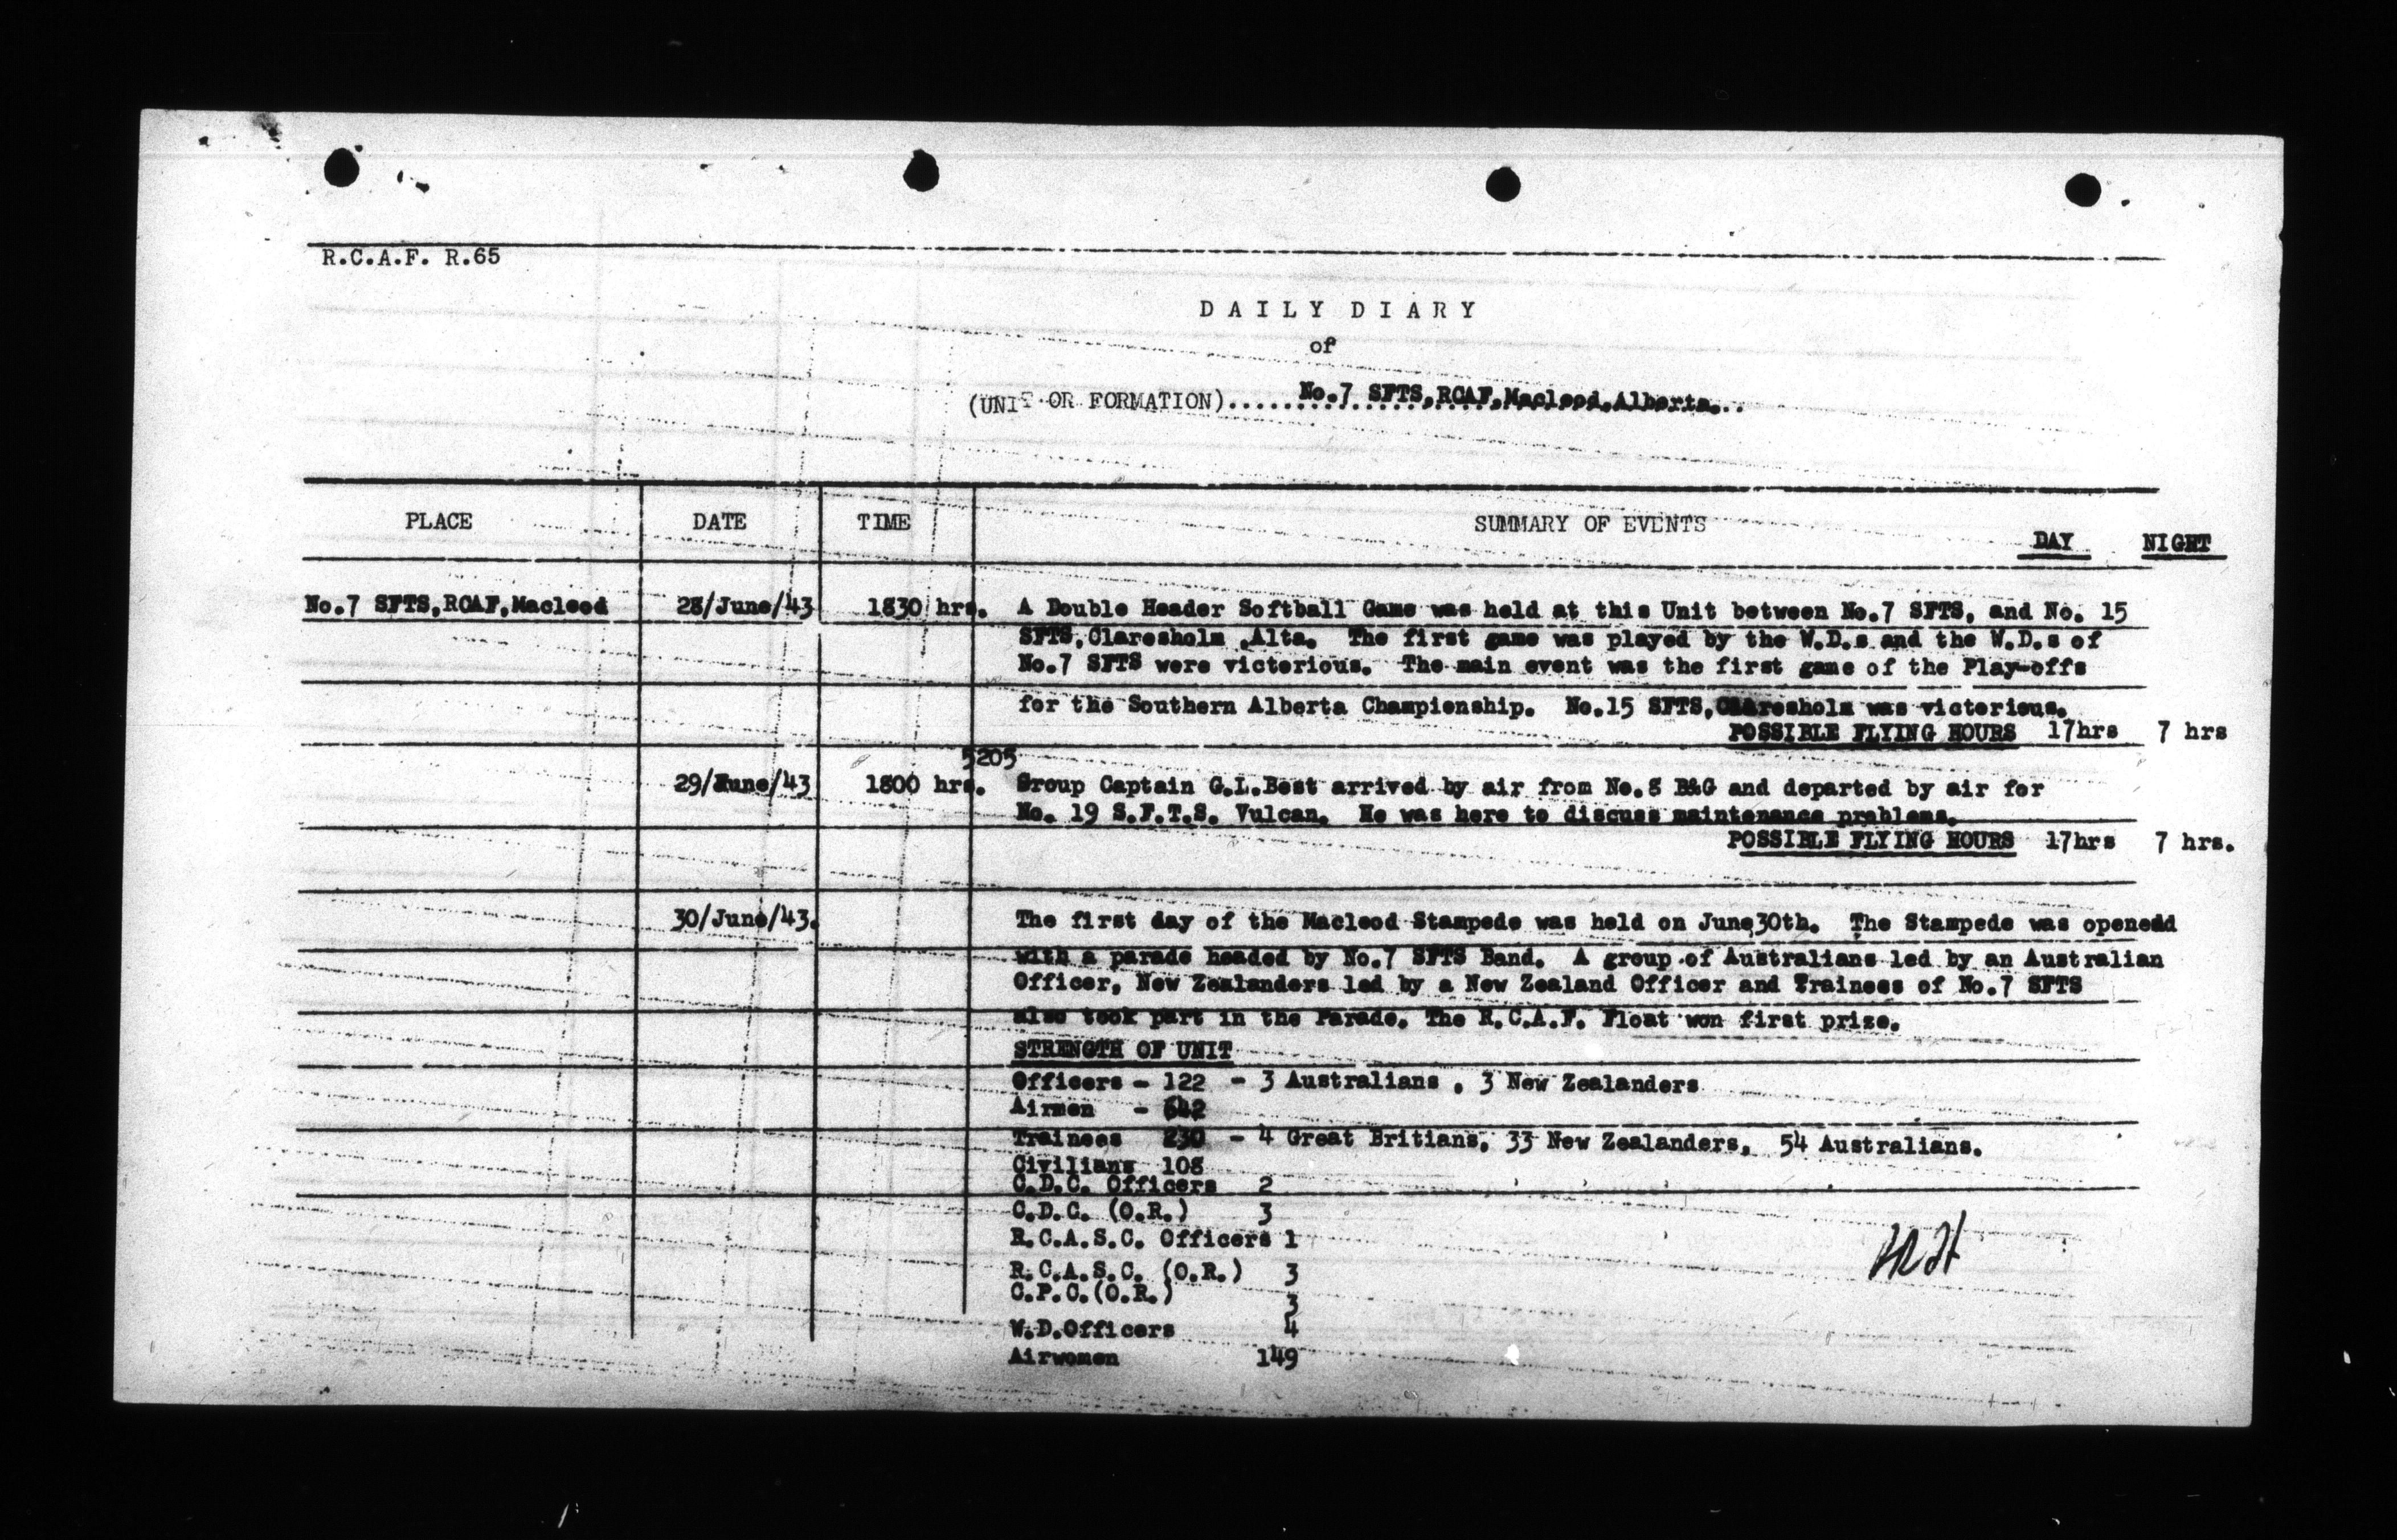 R.C.A.F. R.65
DAILY DIARY
of
(UNIT OR FORMATION)..... No.7 SFTS,RCAF,Macleod,Alberta...
PLACE DATE TIME SUMMARY OF EVENTS DAY NIGHT
No.7 SFTS,RCAF,Macleod 28/June/43 1830 hrs. A Double Header Softball Game was held at this Unit between No.7 SFTS, and No. 15
SFTS,Claresholm ,Alta. The first game was played by the W.D.s and the W.D.s of
No.7 SFTS were victorious. The main event was the first game of the Play-offs
for the Southern Alberta Championship. No.15 SFTS,Claresholm was victorious.
POSSIBLE FLYING HOURS 17hrs 7 hrs
5205
29/June/43 1800 hrs. Group Captain G.L.Best arrived by air from No.8 B&G and departed by air for
No. 19 S.F.T.S. Vulcan. He was here to discuss maintenance problems.
POSSIBLE FLYING HOURS 17hrs 7 hrs.
30/June/43. The first day of the Macleod Stampede was held on June 30th. The Stampede was openedd
with a parade headed by No.7 SFTS Band. A group of Australians led by an Australian
Officer, New Zealanders led by a New Zealand Officer and Trainees of No.7 SFTS
also took part in the Parade. The R.C.A.F. Float won first prize.
STRENGTH OF UNIT
Officers - 122 - 3 Australians , 3 New Zealanders
Airmen - 642
Trainees 230 - 4 Great Britians, 33 New Zealanders, 54 Australians.
Civilians 108
C.D.C. Officers 2
C.D.C. (O.R.) 3
R.C.A.S.C. Officers 1
R.C.A.S.C. (O.R.) 3
C.P.C.(O.R.) 3
W.D.Officers 4
Airwomen 149